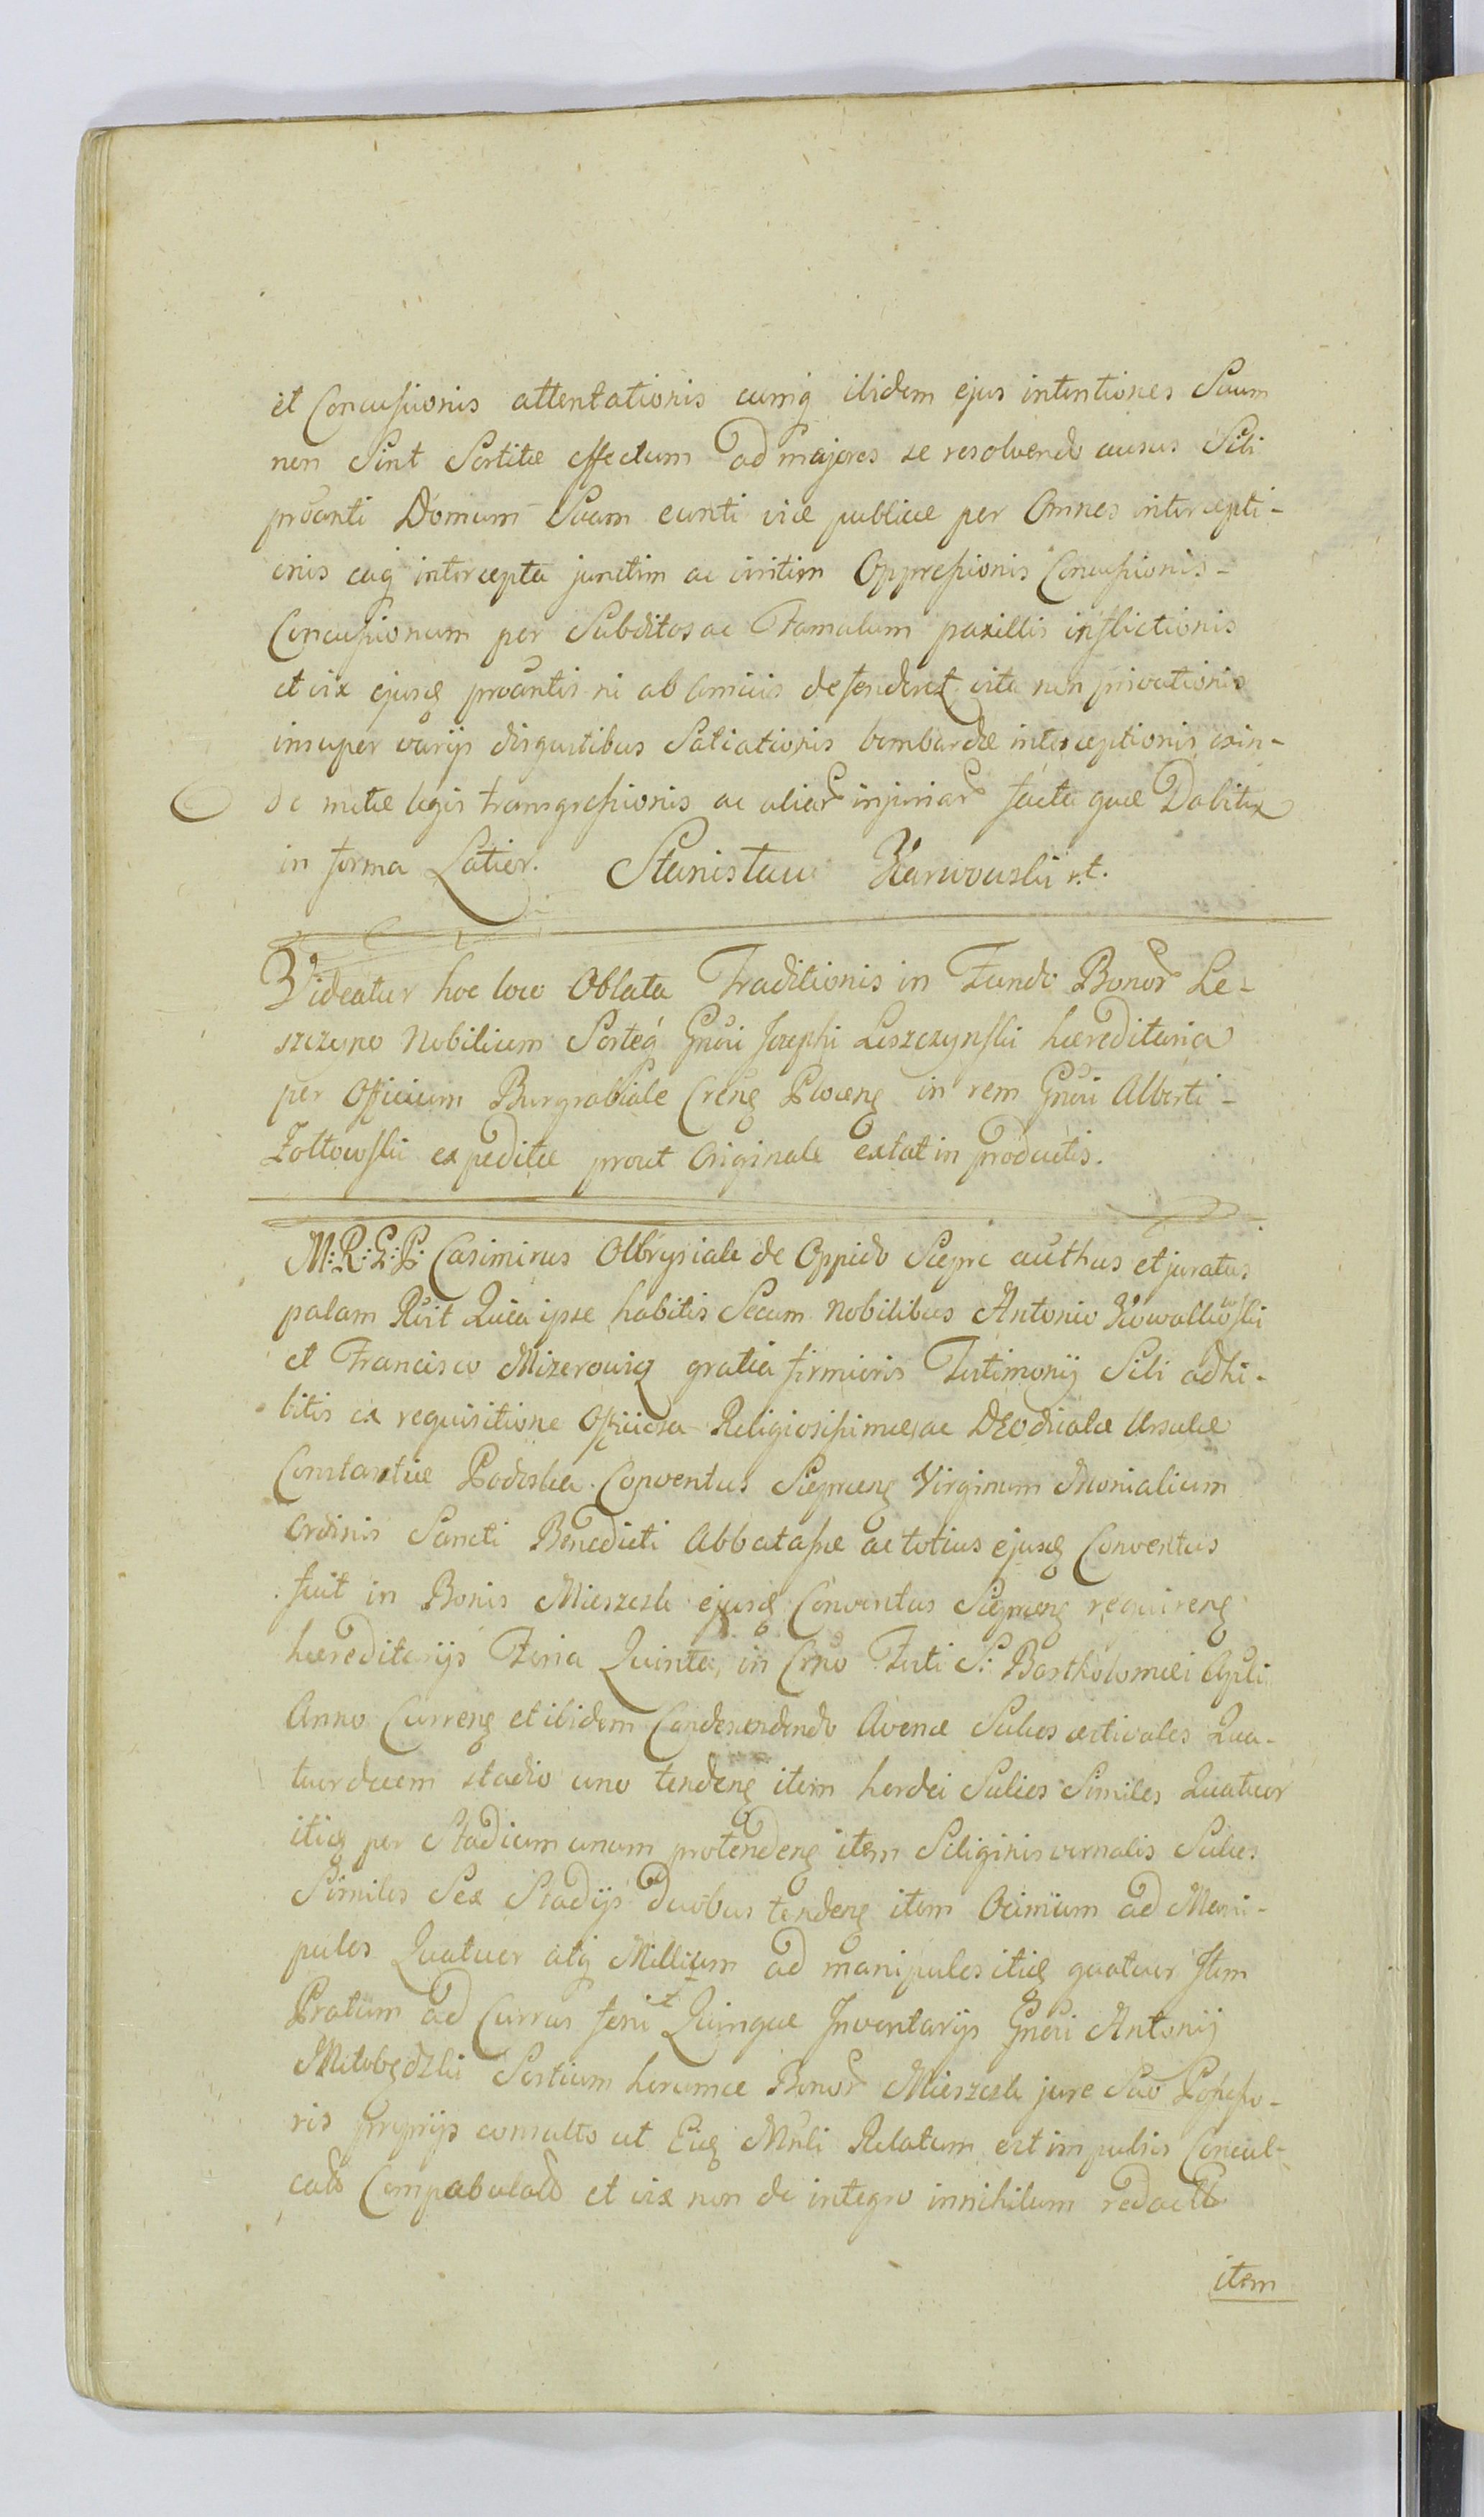 et Concussionis attentationis cumq ibidem ejus intentiones Suum
non Sint Sortitæ effectum ad majores se resolvendo ausus Sibi
proanti Domum Suam eunti viæ publicæ per Omnes intercepti-
onis eaq intercepta junctim ac viritim Oppressionis Concussionis-
Concussionum per Subditos ac Famulum paxillis inflictionis
et vix ejusq proantis ni ab amicis defenderet vita non privationis
insuper varijs disgustibus Satiationis bombardæ interceptionis, exin-
de metæ legis transgressionis ac aliar injuriar facta quæ Dabitur
in forma Latior. Stanisław Karwowski r.t.
Videatur hoc loco Oblata Traditionis in Fundo Bonor Le-
szczyno Nobilium Sorteq Gnöi Josephi Leszczynski hæreditaria
per Officium Burgrabiale Creng Ploceng in rem Gnöi Alberti-
Zołtowski expeditæ prout Originale extat in productis.
M:R:G:P: Casimirus Olbrysiak de Oppido Sieprc authus et juratus
palam Rcit Quia ipse habitis Secum Nobilibus Antonio Kowalkowski
et Francisco Mizerowicz gratia firmioris Testimonij Sibi adhi-
bitis ex requisitione Officiosa Religiosissimæ, ac DEOdicatæ Ursulæ
Constantiæ Podoska Conventus Siepraeng Virginum Monialium
Ordinis Sancti Benedicti Abbatassæ ac totius ejusq Conventus
fuit in Bonis Mieszczk ejusq Conventus Siepraeng requireng
hæreditarijs Feria Quinta, in Crno Festi S: Bartholomæi Apli
Anno Curreng et ibidem Condescendendo Avenæ Sulcos æstivales Qua-
tuordecem stadio uno tendeng item hordei Sulcos Similes Quatuor
itiq per Stadium unum protendeng item Siliginis vernalis Sulcos
Similes Sex Stadijs duobus tendeng item Ocimum ad Mani-
pulos Quatuor atq Millium ad manipulos itiq quatuor Item
Pratum ad Currus feni Quinque Inventarijs Gnöi Antonij
Miłobędzki Sortium horumce Bonor Mieszczk jure Suo Possesso-
ris proprijs consulto ut Eiq Mnli Relatum est impulsis Concul-
cats Compabulats et vix non de integro in nihilum redacts
item